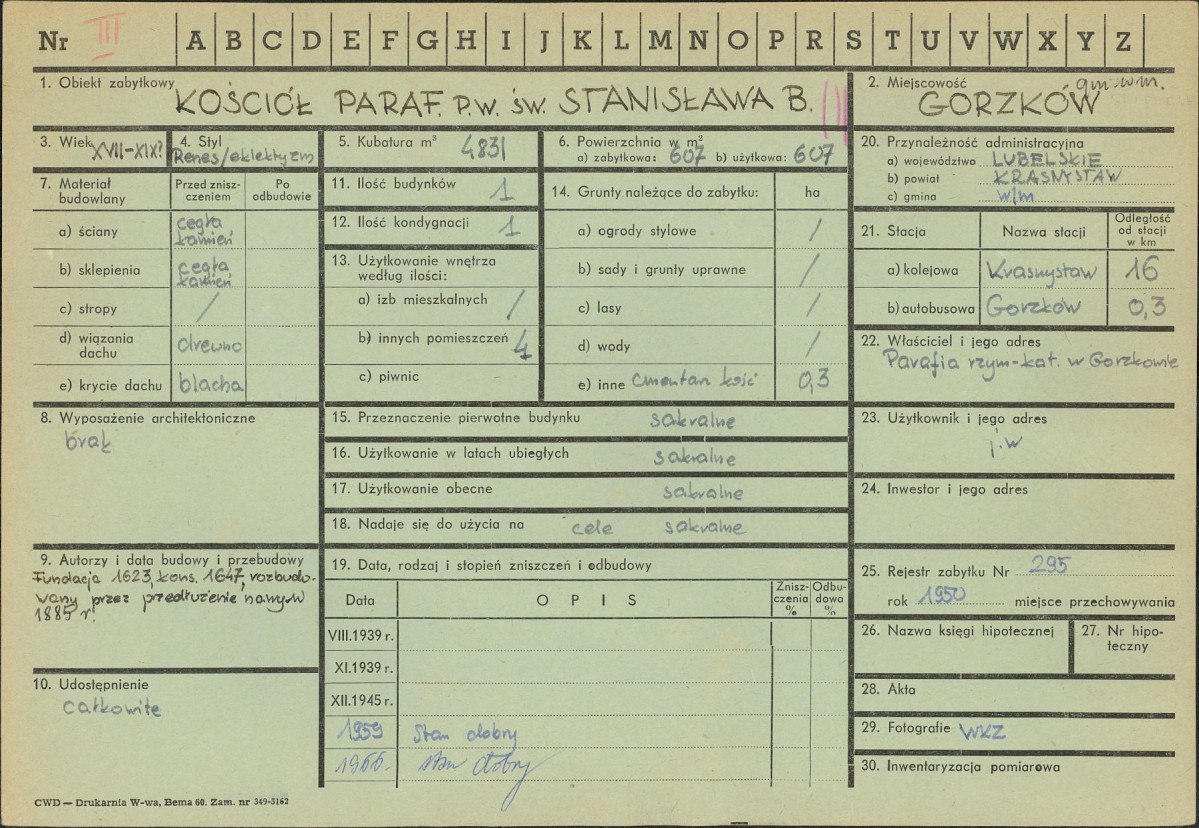 Nr III A B C D E F G H I J K L M N O P R S T U V W X Y Z
1. Obiekt zabytkowy
KOŚCIÓŁ PARAF. P.W. ŚW. STANISŁAWA B.
2. Miejscowość
GORZKÓW
3. Wiek XVII-XIX?
4. Styl
Renes/eklektyzm
5. Kubatura m³ 4831
6. Powierzchnia w m²
a) zabytkowa: 607 b) użytkowa: 607
20. Przynależność administracyjna
a) województwo LUBELSKIE
b) powiat KRASNYSTAW
c) gmina w/m
7. Materiał budowlany
Przed zniszczeniem
Po odbudowie
a) ściany cegła kamień
b) sklepienia cegła kamień
c) stropy /
d) wiązania dachu drewno
e) krycie dachu blacha
11. Ilość budynków 1
12. Ilość kondygnacji 1
13. Użytkowanie wnętrza
według ilości:
a) izb mieszkalnych /
b) innych pomieszczeń 4
c) piwnic
14. Grunty należące do zabytku: ha
a) ogrody stylowe /
b) sady i grunty uprawne /
c) lasy /
d) wody /
e) inne cmentarz kość 0,3
21. Stacja
Nazwa stacji
Odległość
od stacji
w km
a) kolejowa Krasnystaw 16
b) autobusowa Gorzków 0,3
22. Właściciel i jego adres
Parafia rzym-kat. w Gorzkowie
8. Wyposażenie architektoniczne
brak
15. Przeznaczenie pierwotne budynku sakralne
16. Użytkowanie w latach ubiegłych sakralne
17. Użytkowanie obecne sakralne
18. Nadaje się do użycia na cele sakralne
23. Użytkownik i jego adres
j.w
24. Inwestor i jego adres
9. Autorzy i data budowy i przebudowy
Fundacja 1623, kons. 1647, rozbudo-
wany przez przedłużenie nawy w
1885 r.
10. Udostępnienie
całkowite
19. Data, rodzaj i stopień zniszczeń i odbudowy
Data
O P I S
Zniszczenia %
Odbudowa %
VIII.1939 r.
XI.1939 r.
XII.1945 r.
1959 Stan dobry
1966. stan dobry
25. Rejestr zabytku Nr 295
rok 1950 miejsce przechowywania
26. Nazwa księgi hipotecznej
27. Nr hipo-
teczny
28. Akta
29. Fotografie WKZ
30. Inwentaryzacja pomiarowa
CWD — Drukarnia W-wa, Bema 60. Zam. nr 349-5162